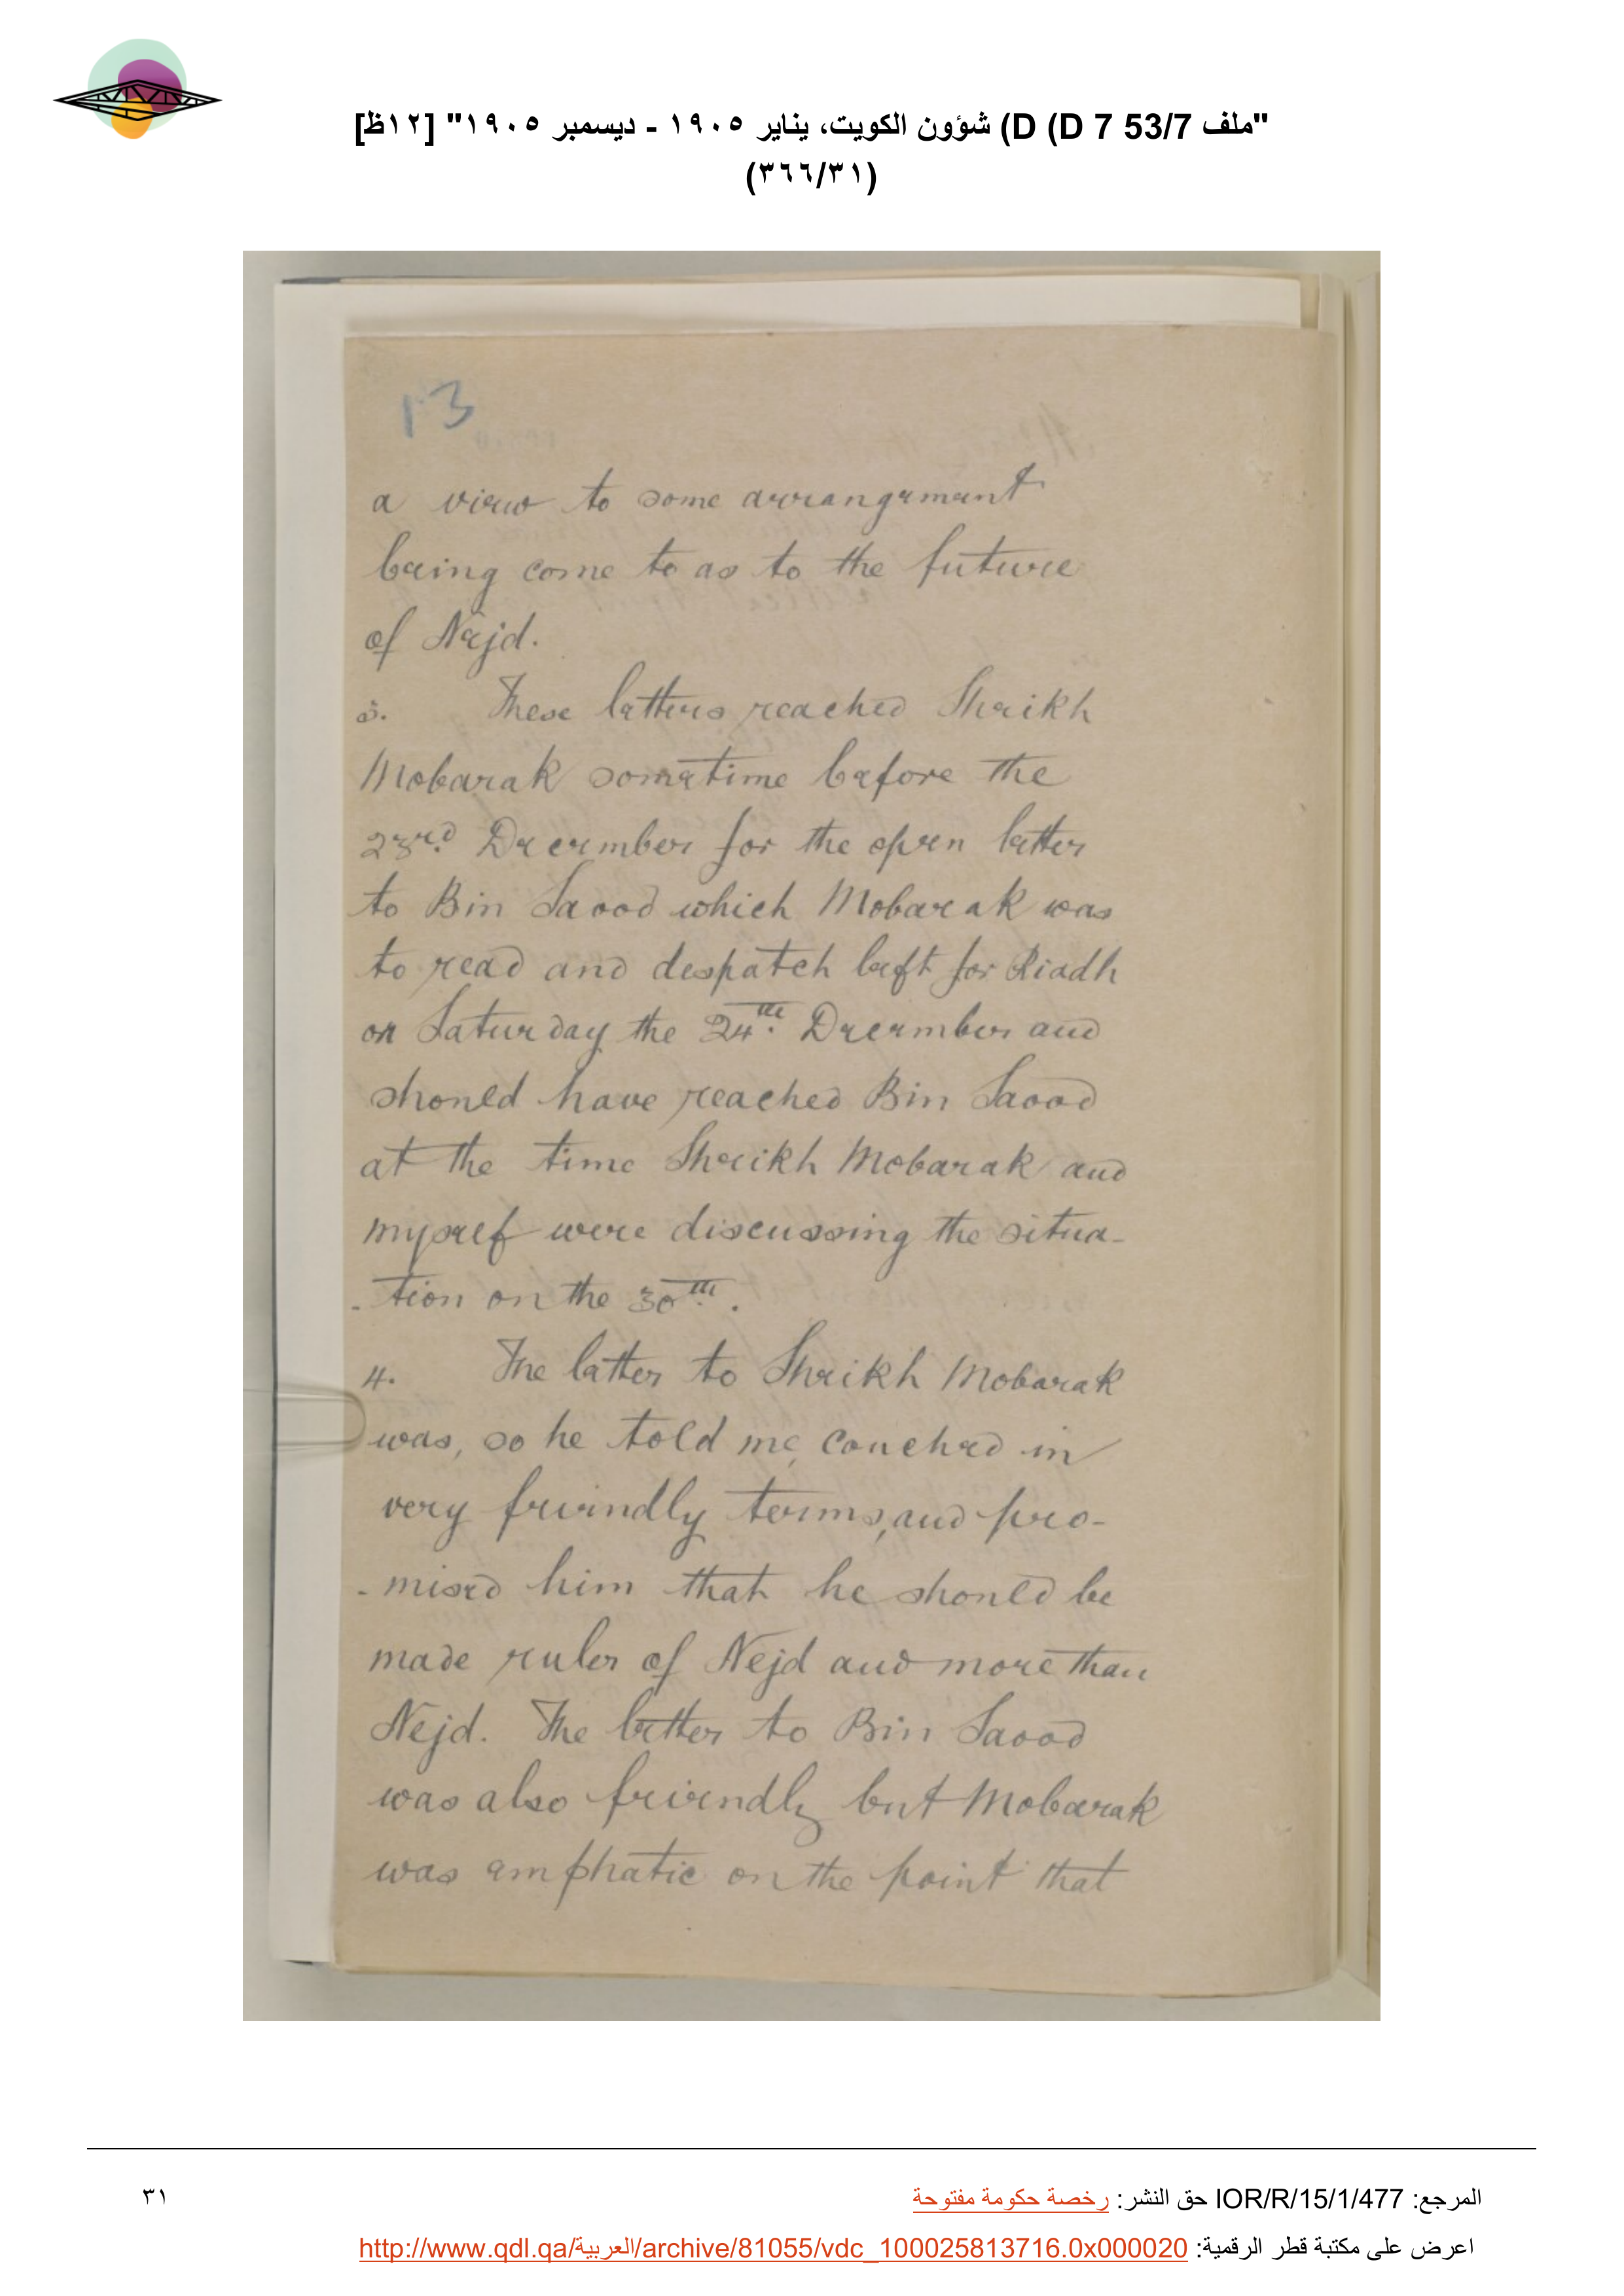 "ملف 53/7 D 7) D) شؤون الكويت، يناير ١٩٠٥ - ديسمبر ١٩٠٥" [١٢ظ]
(٣٦٦/٣١)
13
a view to some arrangement
being come to as to the future
of Nejd.
3. These letters reached Sheikh
Mobarak sometime before the
23rd. December for the open letter
to Bin Saood which Mobarak was
to read and despatch left for Riadh
on Saturday the 24th. December and
should have reached Bin Saood
at the time Sheikh Mobarak and
myself were discussing the situa-
-tion on the 30th.
4. The letter to Sheikh Mobarak
was, so he told me, couched in
very friendly terms, and pro-
-mised him that he should be
made ruler of Nejd and more than
Nejd. The letter to Bin Saood
was also friendly but Mobarak
was emphatic on the point that
المرجع: IOR/R/15/1/477 حق النشر: رخصة حكومة مفتوحة
٣١
اعرض على مكتبة قطر الرقمية: http://www.qdl.qa/العربية/archive/81055/vdc_100025813716.0x000020